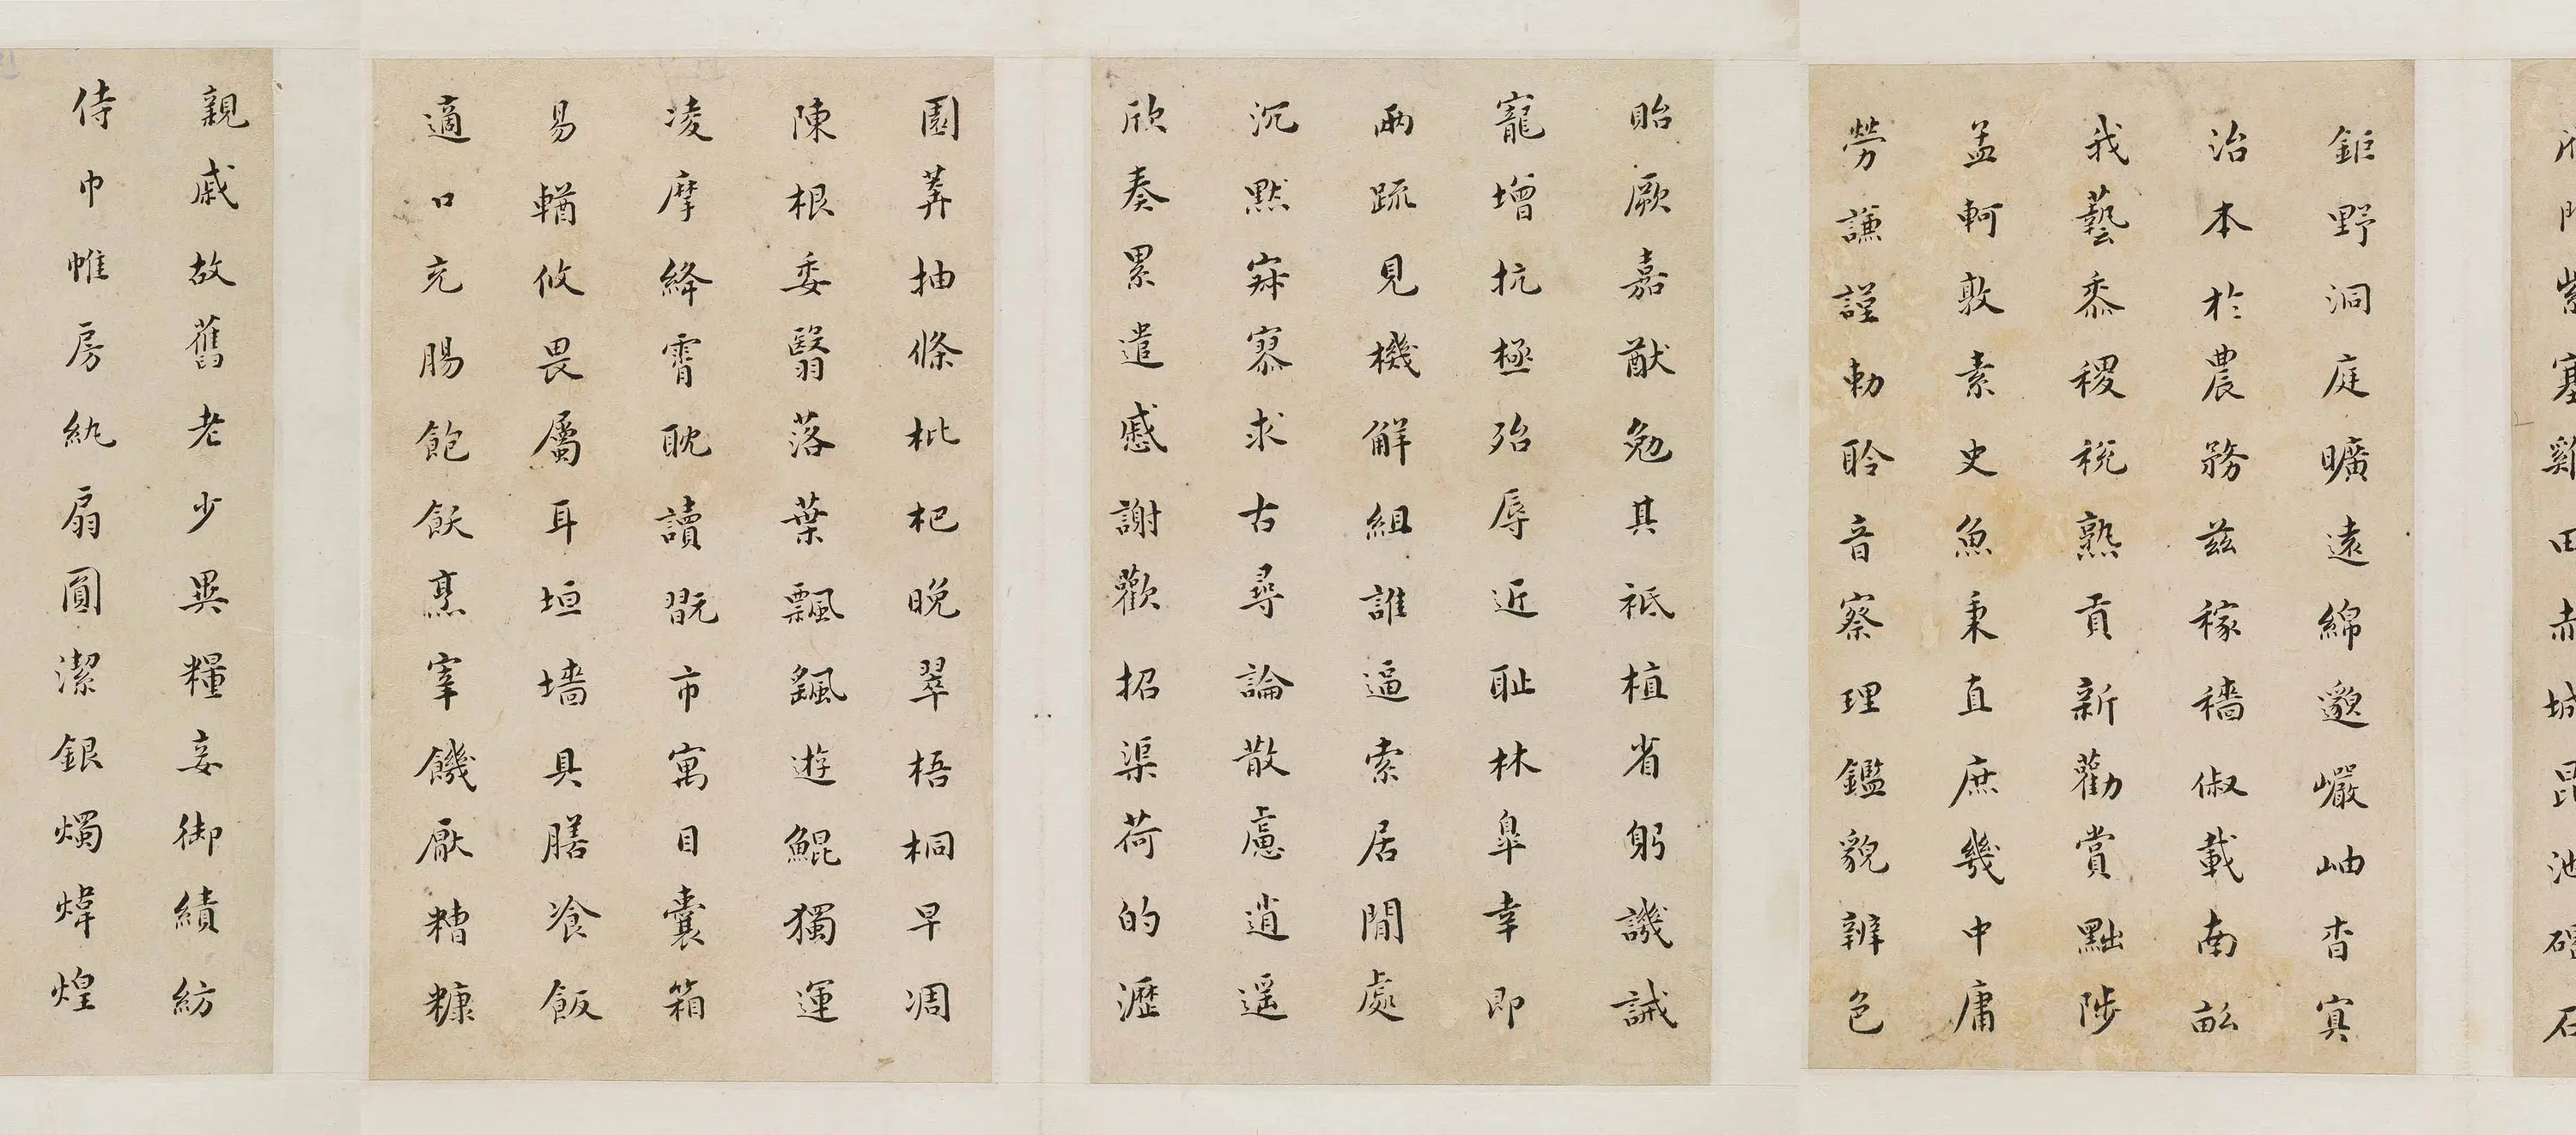 雁門紫塞雞田赤城昆池碣石
鉅野洞庭曠遠綿邈巖岫杳冥
治本於農務兹稼穡俶載南畝
我藝黍稷稅熟貢新勸賞黜陟
孟軻敦素史魚秉直庶幾中庸
勞謙謹勅聆音察理鑑貌辨色
貽厥嘉猷勉其祗植省躬譏誡
寵增抗極殆辱近耻林皋幸即
兩疏見機解組誰逼索居閒處
沉默寂寥求古尋論散慮逍遥
欣奏累遣慼謝歡招渠荷的瀝
園莽抽條枇杷晚翠梧桐早凋
陳根委翳落葉飄颻遊鯤獨運
凌摩絳霄耽讀翫市寓目囊箱
易輶攸畏屬耳垣墻具膳飡飯
適口充腸飽飫烹宰饑厭糟糠
親戚故舊老少異糧妾御績紡
侍巾帷房紈扇圓潔銀燭煒煌